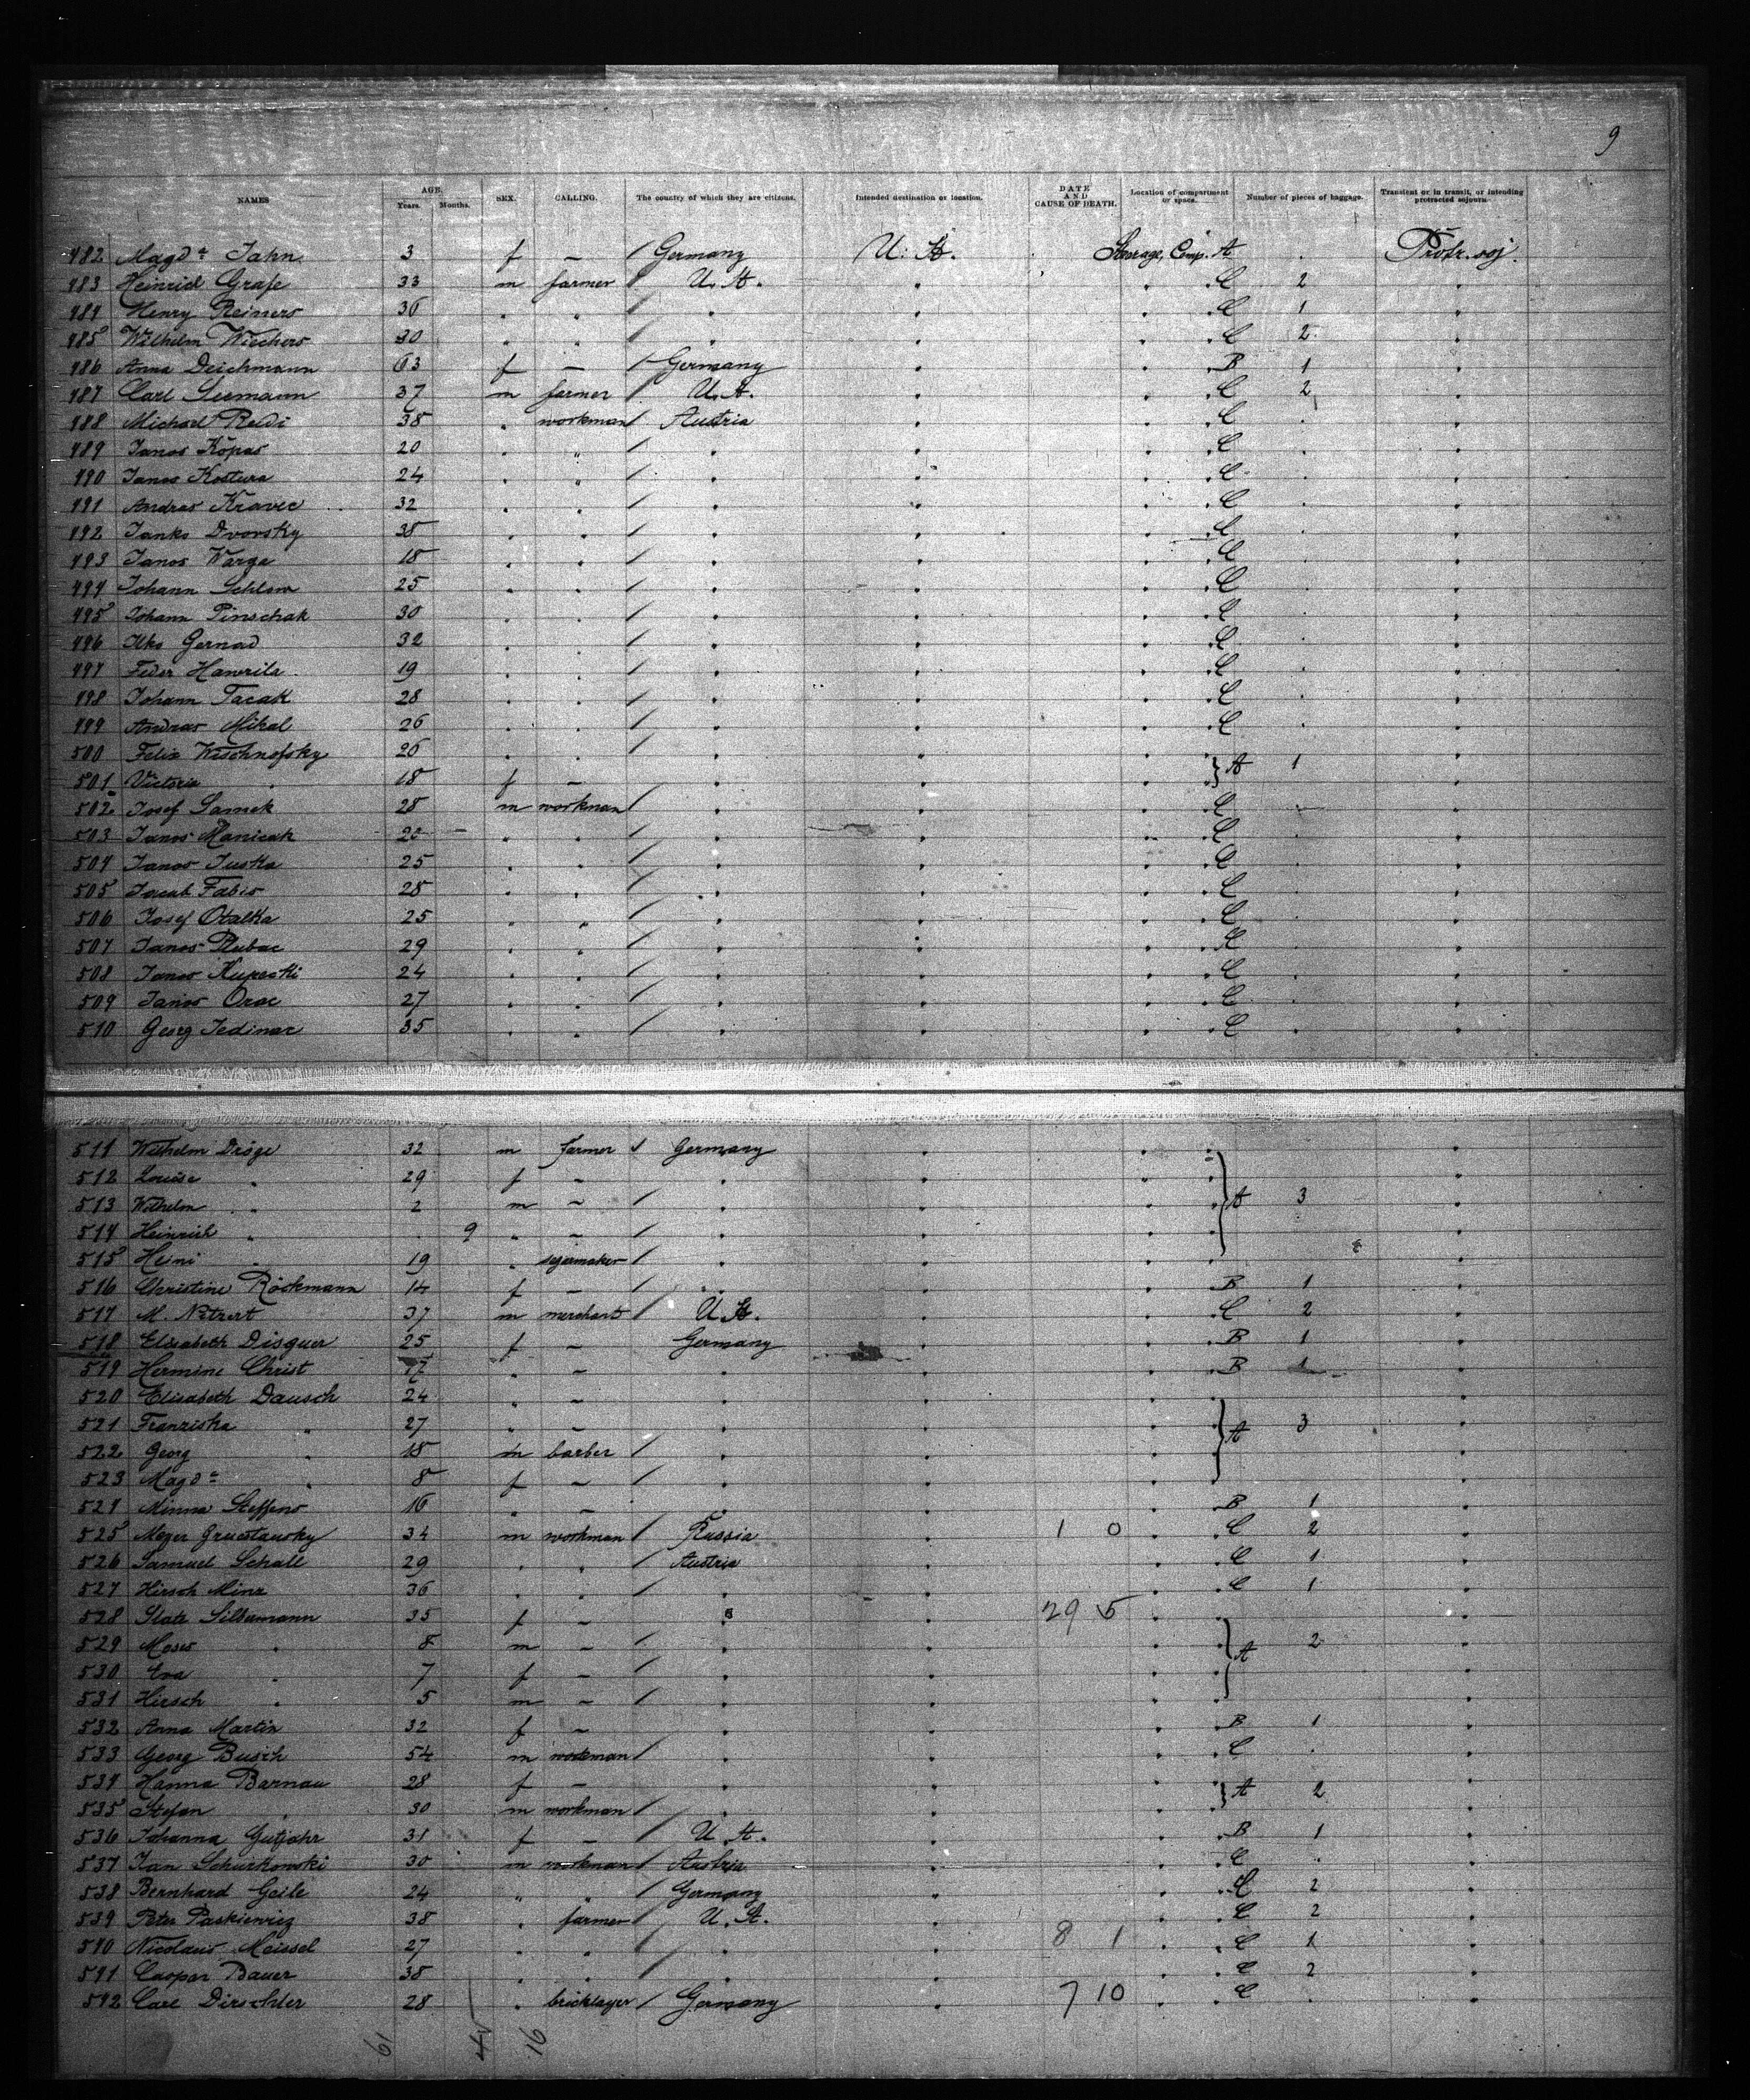 9
NAMES AGE. Years. Months. SEX. CALLING. The country of which they are citizens. Intended destination or location. DATE AND CAUSE OF DEATH. Location of compartment or space. Number of pieces of baggage. Transient or in transit, or intending protracted sojourn.
482 Magda Jahn 3 f – / Germany U. St. Steerage, Comp. A . Protr. soj.
483 Heinrich Grafe 33 m farmer / U. St. . . . C 2 .
484 Henry Reiners 36 . . / . . . . C 1 .
485 Wilhelm Wiechers 30 . . / . . . . C 2 .
486 Anna Deichmann 63 f – / Germany . . . B 1 .
487 Carl 37 m farmer / U. St. . . . C 2 .
488 Michael 38 . workman / Austria . . . C . .
489 Janos Kopas 20 . " / . . . . C . .
490 Janos Kostura 24 . " / . . . . C . .
491 Andras Kravec 32 . . / . . . . C . .
492 Janko Dvorsky 38 . . / . . . . C . .
493 Janos Varga 18 . . / . . . . C . .
494 Johann 25 . . / . . . . C . .
495 Johann Pinschak 30 . . / . . . . C . .
496 Ilko Gernad 32 . . / . . . . C . .
497 Feder Hawrila 19 . . / . . . . C . .
498 Johann Tacak 28 . . / . . . . C . .
499 Andras Mikal 26 . . / . . . . C . .
500 Felix Wischnofsky 26 . . / . . . . } A 1 .
501 Victoria . 18 f – . . . . .
502 Josef Samek 28 m workman / . . . . C . .
503 Janos Manicak 20 . . / . . . . C . .
504 Janos Juska 25 . . / . . . . C . .
505 Jacob Fabis 28 . . / . . . . C . .
506 Josef Otalka 25 . . / . . . . C . .
507 Janos Rubac 29 . . / . . . . C . .
508 Janos Kupecki 24 . . / . . . . C . .
509 Janos Orac 27 . . / . . . . C . .
510 Georg Jedinac 35 . . / . . . . C . .
511 Wilhelm Dröge 32 m farmer / Germany . . .
512 Louise . 29 f – . . . .
513 Wilhelm . 2 m – / . . . . } A 3 .
514 Heinrich . 9 " – / . . . .
515 Heini . 19 . / . . . .
516 Christine Röckmann 14 f – / . . . . B 1 .
517 M. 37 m merchant / U. St. . . . C 2 .
518 Elisabeth Disquer 25 f – Germany . . . B 1 .
519 Hermine Christ 17 . – . . . . B 1 .
520 Elisabeth Dausch 24 " – . . . .
521 Franziska " 27 . – . . . . } A 3 .
522 Georg . 18 m barber / . . . .
523 Magda . 8 f – / . . . .
524 Minna Steffens 16 . – . . . . B 1 .
525 Meyer 34 m workman / Russia . 1 0 . . C 2 .
526 Samuel Schall 29 . . / Austria . . . C 1 .
527 Hirsch Minz 36 . . / . . . . C 1 .
528 Silbermann 35 f – . . 29 5 . . .
529 Moses . 8 m – / . . . . } A 2 .
530 Eva . 7 f – / . . . .
531 Hirsch . 5 m – / . . . .
532 Anna Martin 32 f – . . . . B 1 .
533 Georg Busch 54 m workman / . . . . C . .
534 Hanna Barnau 28 f – . . . . } A 2 .
535 Stefan . 30 m workman / . . . .
536 Johanna Gutjahr 31 f – / U. St. . . . B 1 .
537 Jan Schurkowski 30 m workman / Austria . . . C . .
538 Bernhard Geile 24 " " / Germany . . . C 2 .
539 Peter Paskiewicz 38 . farmer / U. St. . . . C 2 .
540 Nicolaus Meissel 27 . . / . . 8 1 . . C 1 .
541 Caspar Bauer 38 . . / . . . . C 2 .
542 Carl Dirschler 28 . bricklayer / Germany . 7 10 . . C . .
61 45 16